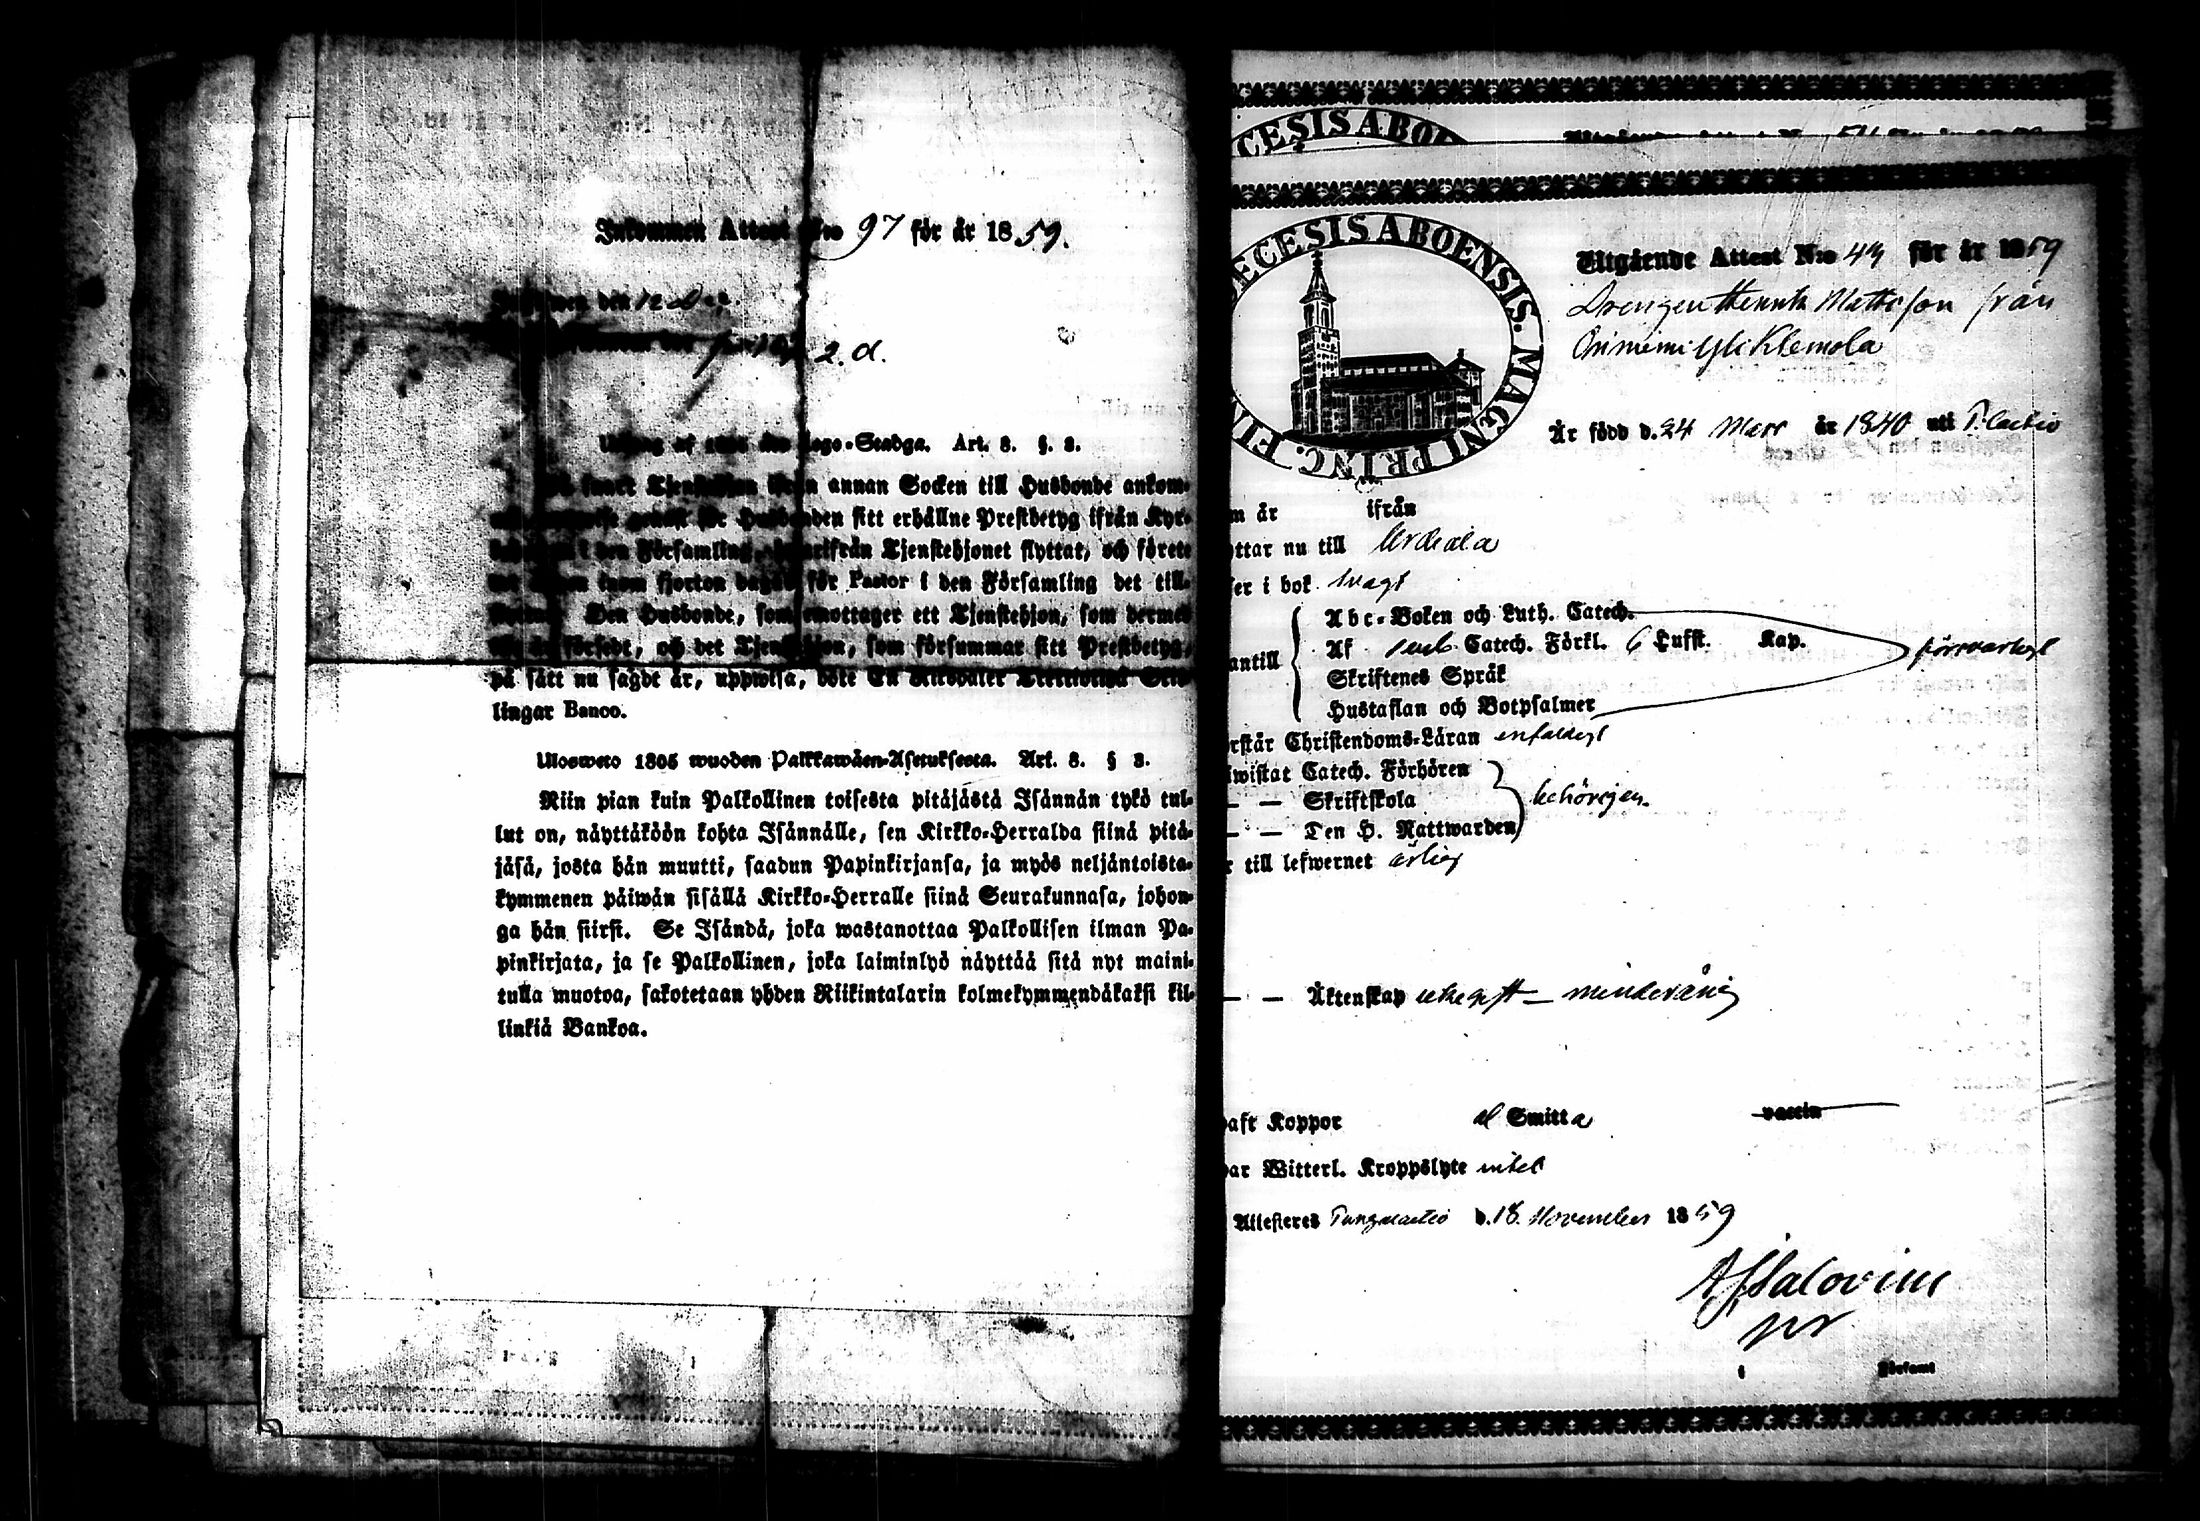 Inkommen Attest N:o 97 för år 1859.
den 12 Dec.
2. d.
Utdrag af Lego-Stadga. Art. 8. §. 8.
annan Socken till Husbonde ankom-
sitt erhållne Prestbetyg ifrån Kyr-
den Församling, Tjenstehjonet flyttat, och förete
inom fjorton dagar för Pastor i den Församling det till-
Den Husbonde, som emottager ett Tjenstehjon, som dermed
försedt, och det Tjenstehjon, som försummar sitt Prestbetyg,
på sätt nu sagdt är, uppwisa, böte En Riksdaler
lingar Banco.
Ulosweto 1805 wuoden Palkkawäen-Asetuksesta. Art. 8. § 8.
Niin pian kuin Palkollinen toisesta pitäjästä Isännän tykö tul-
lut on, näyttäköön kohta Isännälle, sen Kirkko-Herralda siinä pitä-
jäsä, josta hän muutti, saadun Papinkirjansa, ja myös neljäntoista-
kymmenen päiwän sisällä Kirkko-Herralle siinä Seurakunnasa, johon-
ga hän siirsi. Se Isändä, joka wastanottaa Palkollisen ilman Pa-
pinkirjata, ja se Palkollinen, joka laiminlyö näyttää sitä nyt maini-
tulla muotoa, sakotetaan yhden Riikintalarin kolmekymmendäkaksi kil-
linkiä Bankoa.
CESIS ABO
ECESIS ABOENSIS. MAGNI PRINC. FIN
Utgående Attest N:o 43 för år 1859
Drengen Henrik Mattsson från
Yli Klemola
Är född d. 24 Mars år 1840 uti
m år ifrån
ttar nu till Urdiala
er i bok svagt
Abc-Boken och Luth. Catech.
antill Af Catech. Förkl. 6 Lufst. Kap. försvarligt
Skriftenes Språk
Hustaflan och Botpsalmer
rstår Christendoms-Läran enfaldigt
iwistat Catech. Förhören
— — Skriftskola behörigen.
— — Den H. Nattwarden
r till lefwernet ärlig
— — Äktenskap ogift — minderårig
aft Koppor af Smitta vaccin
ar Witterl. Kroppslyte intet
Attesteras d. 18. November 1859
i Församl